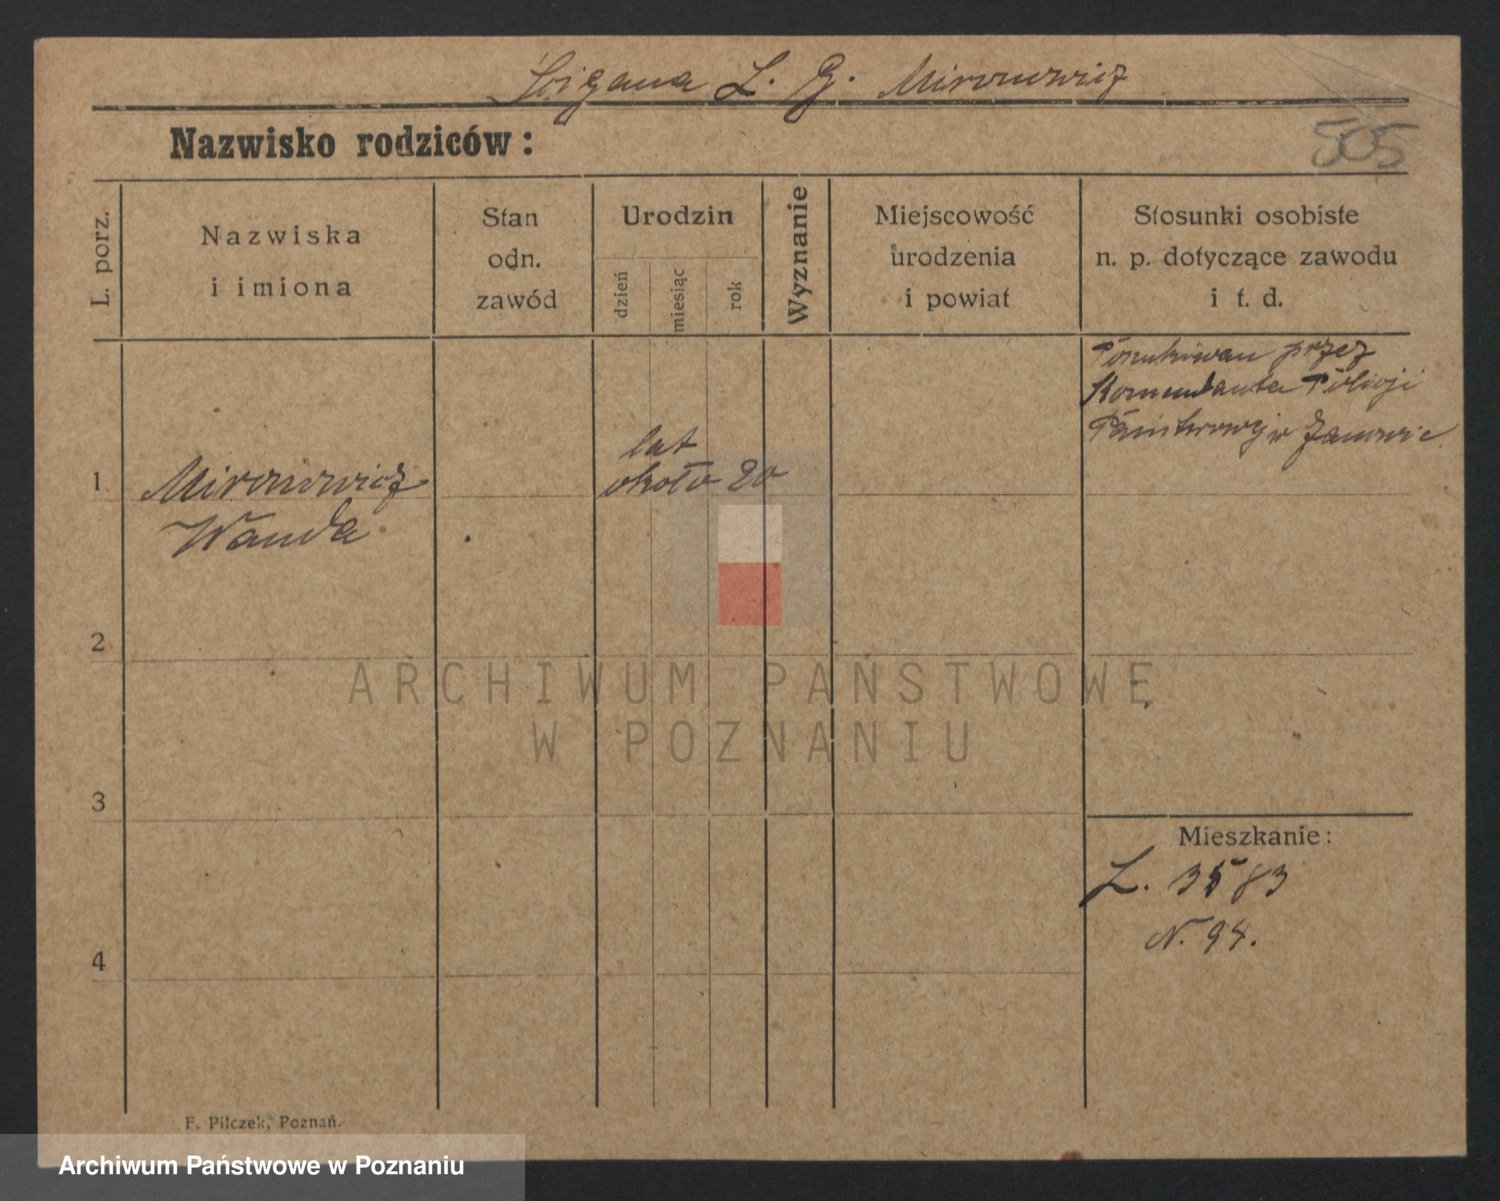 Ścigana L. G. Mironowicz
Nazwisko rodziców:
505
L. porz.
Nazwiska
i imiona
Stan
odn.
zawód
Urodzin
dzień
miesiąc
rok
Wyznanie
Miejscowość
urodzenia
i powiat
Stosunki osobiste
n. p. dotyczące zawodu
i t. d.
przez
Komendanta Policji
w Janowie
1
Mironowicz
Wanda
lat
około 20
2
3
4
Mieszkanie:
L. 3583
N. 94.
F. Pilczek, Poznań.
ARCHIWUM PAŃSTWOWE
W POZNANIU
Archiwum Państwowe w Poznaniu